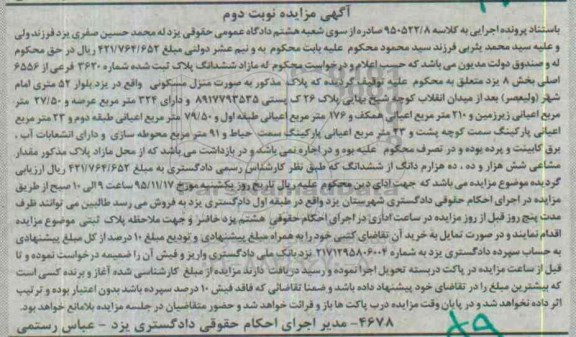 آگهی مزایده نوبت دوم
باستناد پرونده اجرایی به کلاسه ۹۵۰۵۲۲/۸ صادره از سوی شعبه هشتم دادگاه عمومی حقوقی یزد له محمد حسین صفری یزد فرزند ولی
و علیه سید محمد یثربی فرزند سید محمود محکوم علیه بابت محکوم به و نیم عشر دولتی مبلغ ۴۲۱/۷۶۴/۶۵۲ ریال در حق محکوم
له و صندوق دولت مدیون می باشد که حسب اعلام و درخواست محکوم له مازاد ششدانگ پلاک ثبت شده شماره ۳۶۲۰ فرعی از ۶۵۵۶
اصلی بخش ۸ یزد متعلق به محکوم علیه توقیف گردیده که پلاک مذکور به صورت منزل مسکونی واقع در یزد بلوار ۵۲ متری امام
شهر (ولیعصر) بعد از میدان انقلاب کوچه شیخ بهایی پلاک ۲۶ کد پستی ۸۹۱۷۷۹۳۵۳۵ و دارای ۳۲۴ متر مربع عرصه و ۲۷/۵۰ متر
مربع اعیانی زیرزمین و ۲۱۰ متر مربع اعیانی همکف و ۱۷۶ متر مربع اعیانی طبقه اول و ۷۹/۵۰ متر مربع اعیانی طبقه دوم و ۲۳ متر مربع
اعیانی پارکینگ سمت کوچه پشت و ۲۳ متر مربع اعیانی پارکینگ سمت حیاط و ۹۱ متر مربع محوطه سازی و دارای انشعابات آب ،
برق کابینت و پرده بوده و در تصرف محکوم علیه بود و در اجاره نمی باشد و در بازداشت می باشد که از محل مازاد پلاک مذکور مقدار
مشاعی شش هزار و ده ، ده هزارم دانگ از ششدانگ که طبق نظر کارشناس رسمی دادگستری به مبلغ ۴۲۱/۷۶۴/۶۵۲ ریال ارزیابی
گردیده موضوع مزایده می باشد که جهت ادای دین محکوم علیه ریال تاریخ روز یکشنبه مورخ ۹۵/۱۱/۱۷ ساعت ۹ الی ۱۰ صبح از طریق
مزایده در اجرای احکام حقوقی دادگستری شهرستان یزد واقع در طبقه اول دادگستری یزد به فروش می رسد طالبین می توانند ظرف
مدت پنج روز قبل از روز مزایده در ساعت اداری در اجرای احکام حقوقی هشتم یزد حاضر و جهت ملاحظه پلاک ثبتی موضوع مزایده
اقدام نمایند و در صورت تمایل به خرید آن تقاضای کتبی خود را به همراه مبلغ پیشنهادی و تودیع مبلغ ۱۰ درصد از کل مبلغ پیشنهادی
به حساب سپرده دادگستری یزد به شماره ۲۱۷۱۲۹۵۸۰۶۰۰۴ نزد بانک ملی دادگستری واریز و فیش آن را ضمیمه درخواست نموده و تا
قبل از ساعت مزایده در پاکت دربسته تحویل اجرا نموده و رسید دریافت دارند مزایده از مبلغ کارشناسی شده آغاز و برنده کسی است
که بیشترین مبلغ را در تقاضای خود پیشنهاد داده باشد و ضمنا تقاضائی که فاقد فیش ۱۰ درصد سپرده باشد بدون اعتبار بوده و ترتیب
اثر داده نخواهد شد و در پایان وقت مزایده درب پاکت ها باز و قرائت خواهد شد و حضور متقاضیان در جلسه مزایده بلامانع خواهد بود.
۴۶۷۸- مدیر اجرای احکام حقوقی دادگستری یزد - عباس رستمی